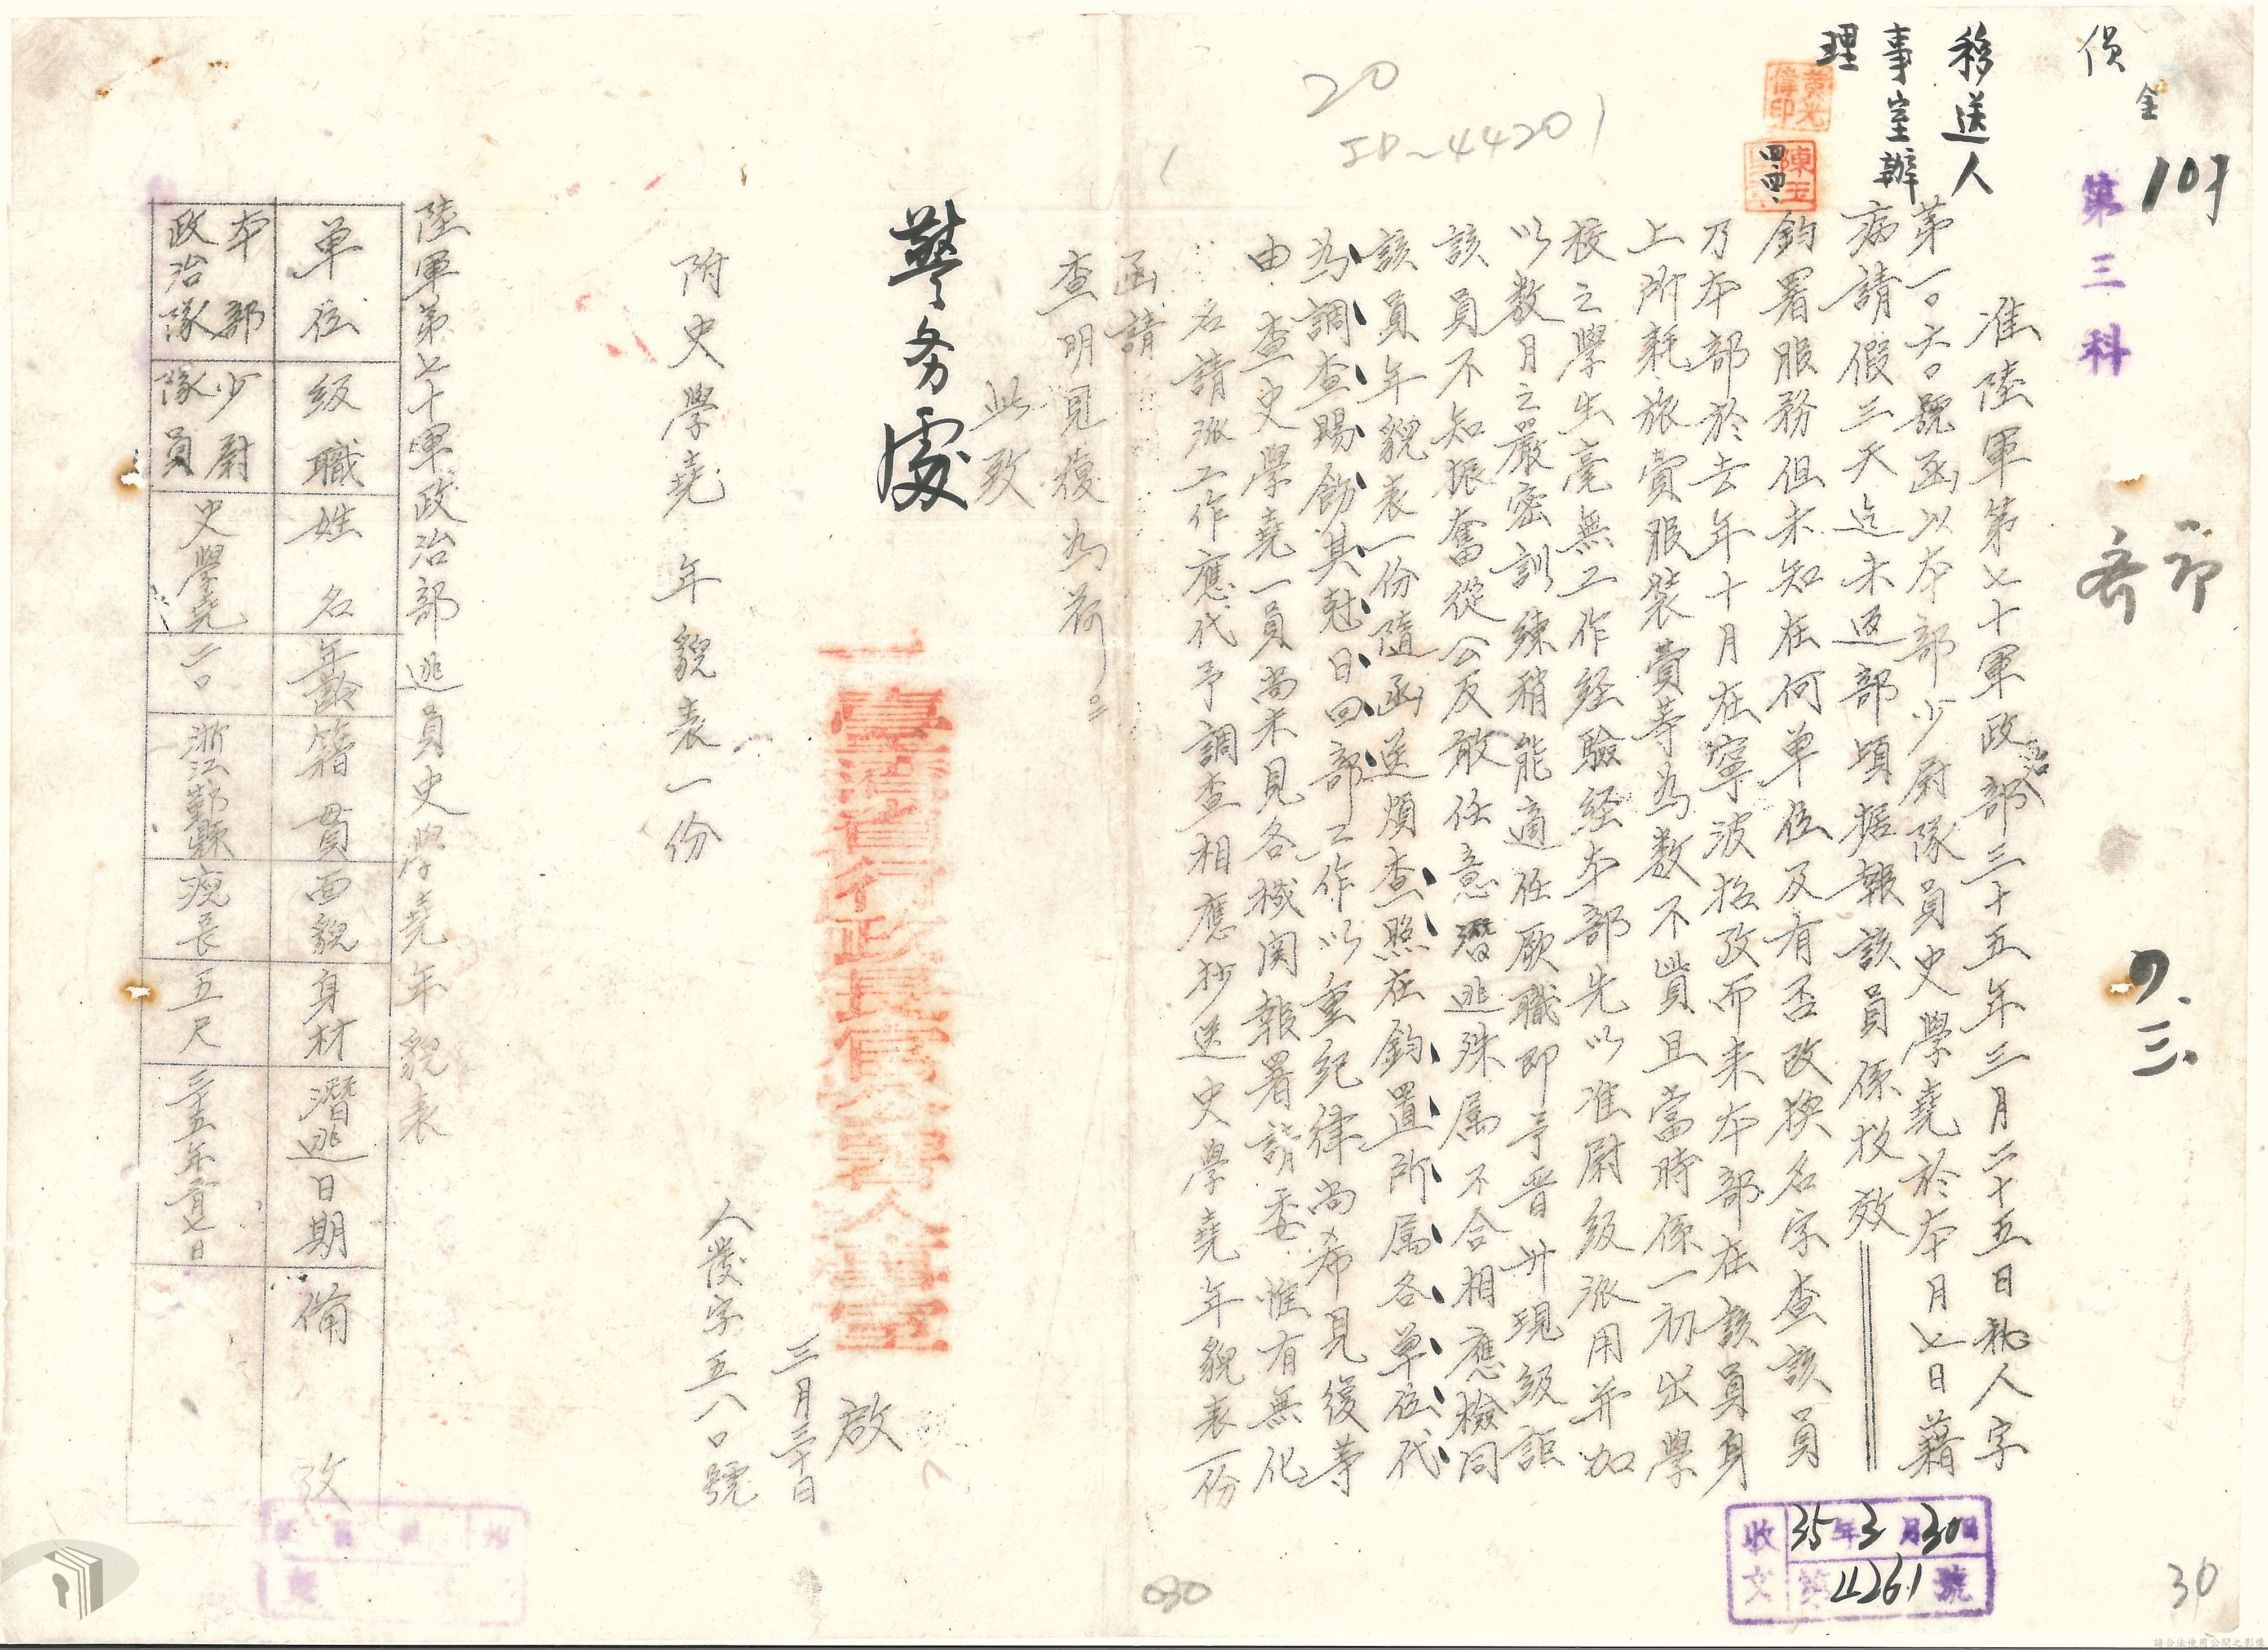 俱
全
109
第三科
移送人
事室辦
理
黃光偉印
陳玉
四.四.
20
ID-44201
四.三.
准陸軍第七十軍政治部三十五年三月二十五日秘人字
第一〇六〇號函以本部少尉隊員史學堯於本月七日藉
病請假三天迄未返部頃据報該員係投效
鈞署服務但未知在何單位及有否改換名字查該員
乃本部於去年十月在寧波招攷而来本部在該員身
上所耗旅費服裝費等為數不貲且當時係一初出學
校之學生毫無工作经驗经本部先以准尉级派用并加
以数月之嚴密訓練稍能適任厥職即予晋升現级詎
該員不知振奮從公反敢任意潛逃殊属不合相應檢同
該員年貌表一份隨函送煩查照在鈞置所属各單位代
為調查賜飭其尅日回部工作以重纪律尚希見復等
由查史學堯一員尚未見各機関報署請委惟有無化
名請派工作應代予調查相應抄送史學堯年貌表一份
函請
查明見復為荷。
此致
警务處
臺灣省行政長官公署人事室
啟
三月三十日
附史學堯年貌表一份
人發字五八〇號
陸軍第七十軍政治部逃員史學堯年貌表
單位 级職 姓名 年齡 籍貫 面貌 身材 潛逃日期 備攷
本部政治隊 少尉隊員 史學堯 二〇 浙江鄞縣 瘦長 五尺 三十五年三月七日
收文 35年3月30日
第4261號
080
30
請合法使用公開之影像